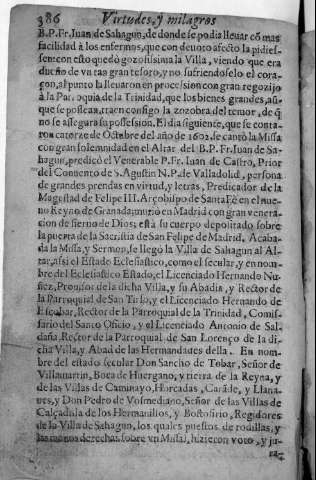 386 Virtudes, y milagros
B. P. Fr. Iuan de Sahagun, de donde se podia lleuar cõ mas
facilidad à los enfermos, que con deuoto afecto la pidies-
sen: con esto quedò gozosissima la Villa, viendo que era
gran tesoro, y no sufriendoselo el cora-
çon, al punto la lleuaron en procession con gran regozijo
à la Parroquia de la Trinidad, que los bienes grandes, aũ-
que se possean, traen consigo la zozobra del temor, de q̃
no se assegura su possession. El dia siguiente, que se conta-
ron catorze de Octubre del año de 1602. se cantò la Missa
con gran solemnidad en el Altar del B. P. Fr. Iuan de Sa-
hagun, predicò el Venerable P. Fr. Iuan de Castro, Prior
del Conuento de S. Agustin N. P. de Valladolid, persona
de grandes prendas en virtud, y letras, Predicador de la
Magestad de Felipe III. Arçobispo de Santa Fè en el nue-
uo Reyno de Granada, muriò en Madrid con gran venera-
cion de sieruo de Dios; està su cuerpo depositado sobre
la puerta de la Sacristia de San Felipe de Madrid. Acaba-
da la Missa, y Sermon, se llegò la Villa de Sahagun al Al-
tar, assi el Estado Eclesiastico, como el secular, y en nom-
bre del Eclesiastico Estado, el Licenciado Hernando Nu-
ñez, Prouisor de la dicha Villa, y su Abadia, y Rector de
la Parroquial de San Tirso, y el Licenciado Hernando de
Escobar, Rector de la Parroquial de la Trinidad, Comis-
sario del Santo Oficio, y el Licenciado Antonio de Sal-
daña, Rector de la Parroquial de San Lorenço de la di-
cha Villa, y Abad de las Hermandades della. En nom-
bre del estado secular Don Sancho de Tobar, Señor de
Villamartin, Boca de Huergano, y tierra de la Reyna, y
de las Villas de Caminayo, Horcadas, Carãde, y Llana-
ues, y Don Pedro de Vosmediano, Señor de las Villas de
Calçadilla de los Hermanillos, y Bostosirio, Regidores
de la Villa de Sahagun, los quales puestos de rodillas, y
las manos derechas sobre vn Missal, hizieron voto, y ju-
ra-